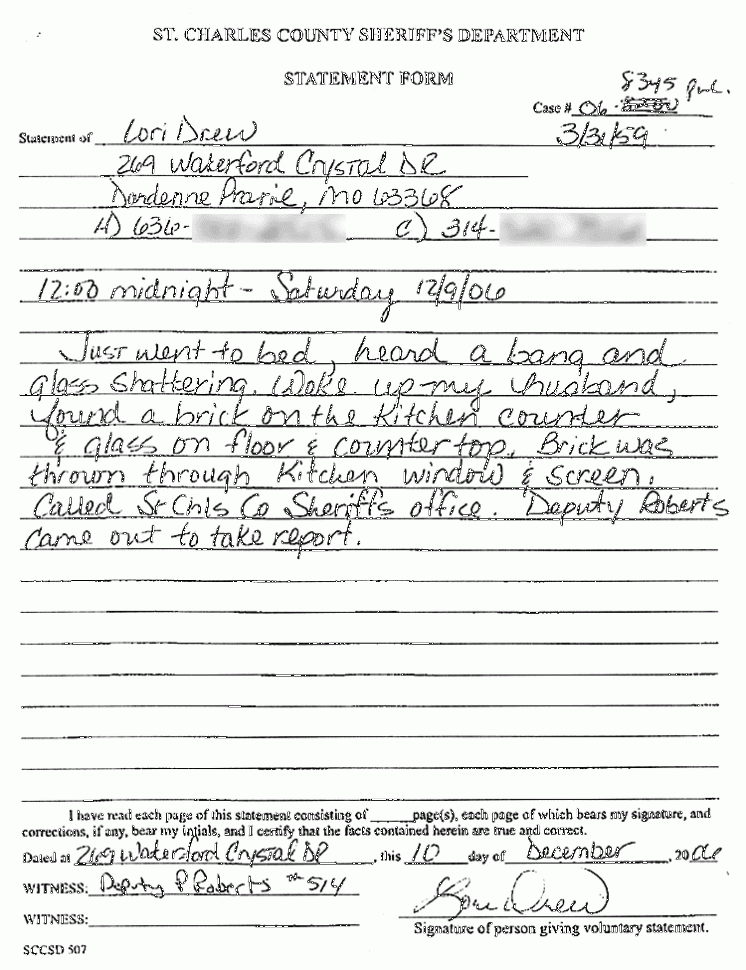 ST. CHARLES COUNTY SHERIFF'S DEPARTMENT
STATEMENT FORM
8345
Case # 06-
Statement of Lori Drew 3/31/59
269 Waterford Crystal DR
Dardenne Prairie, MO 63368
H) 636- C) 314-
12:00 midnight - Saturday 12/9/06
Just went to bed, heard a bang and
glass shattering. Woke up my husband,
found a brick on the kitchen counter
& glass on floor & counter top. Brick was
thrown through kitchen window & screen.
Called St Chls Co Sheriffs office. Deputy Roberts
came out to take report.
I have read each page of this statement consisting of ______page(s), each page of which bears my signature, and
corrections, if any, bear my intials, and I certify that the facts contained herein are true and correct.
Dated at 269 Waterford Crystal DR, this 10 day of December, 2006
WITNESS: Deputy P Roberts #514
WITNESS: Lori Drew
Signature of person giving voluntary statement.
SCCSD 507